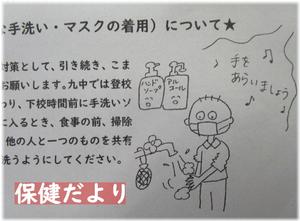 な手洗い・マスクの着用）について★
対策として、引き続き、こま
お願いします。九中では登校
わり、下校時間前に手洗いソ
に入るとき、食事の前、掃除
他の人と一つのものを共有
洗うようにしてください。
ハンド
ソープ
アル
コール
手を
あらいましょう
保健だより